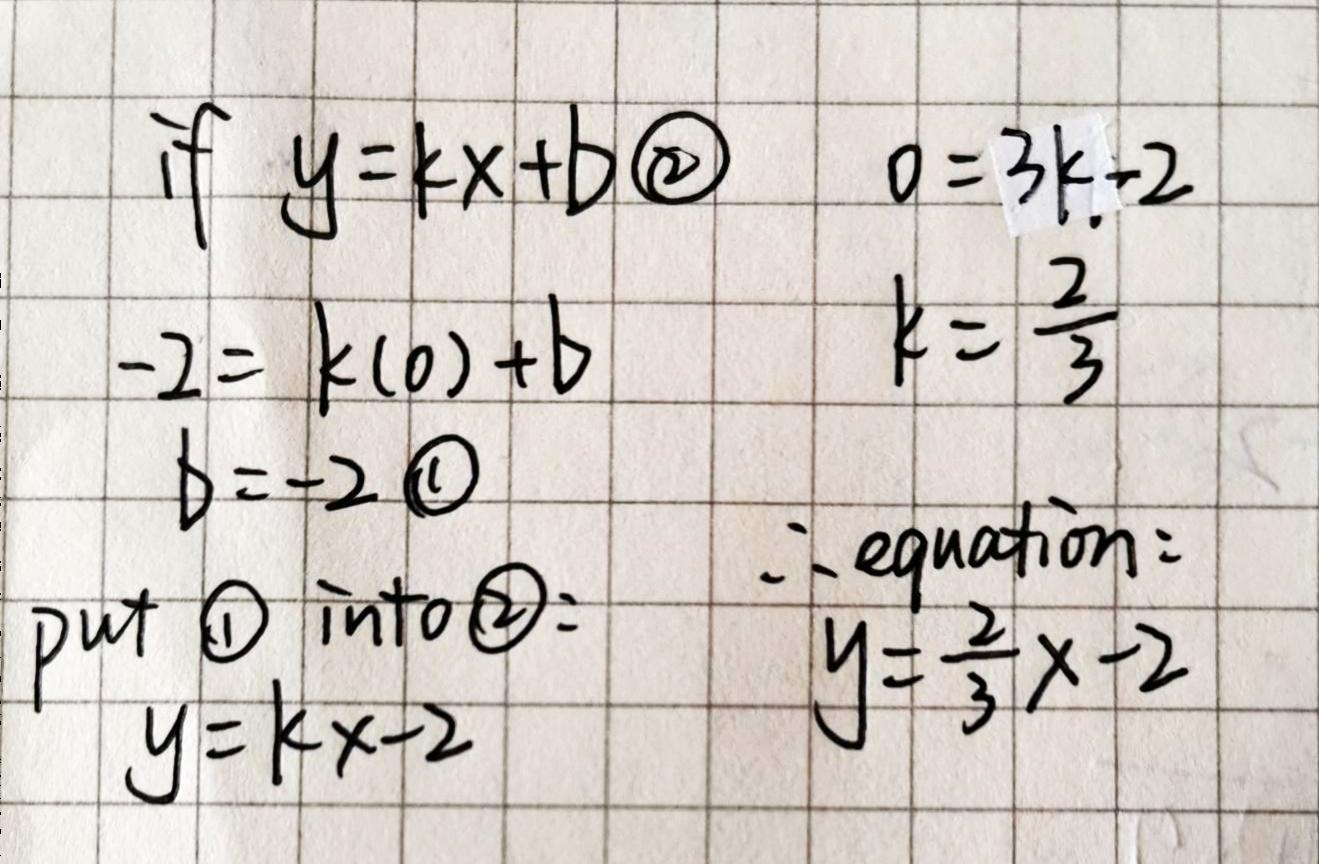 if y=kx+b②
-2= k(0)+b
b=-2①
put ① into②:
y=kx-2
0=3k-2
k=2/3
∴ equation:
y=2/3x-2